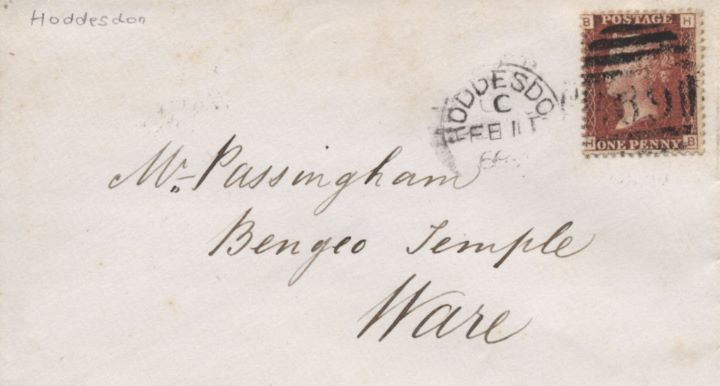 Hoddesdon
B POSTAGE H
HODDESDO
C
FE 11
ONE PENNY
H B
Mr. Passingham
Bengeo Temple
Ware